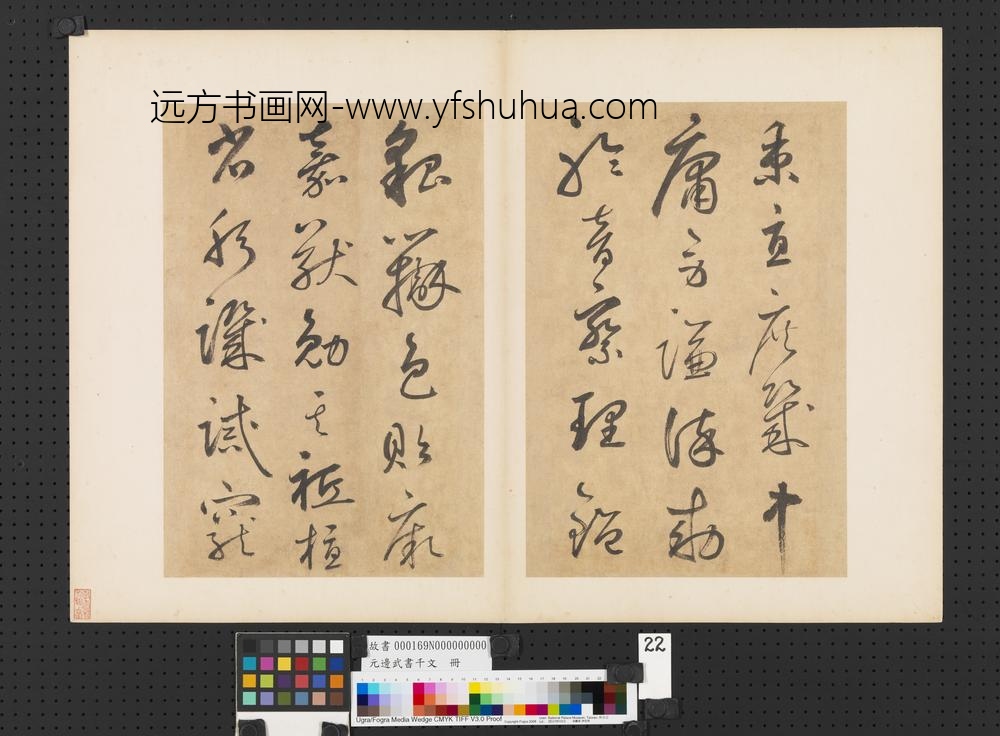 远方书画网-www.yfshuhua.com
秉直庶幾中
庸勞謙謹勅
聆音察理鑑
貌辯色貽厥
嘉猷勉其祗植
省躬譏誡寵
故書 000169N000000000
元邊武書千文 冊
22
Ugra/Fogra Media Wedge CMYK TIFF V3.0 Proof